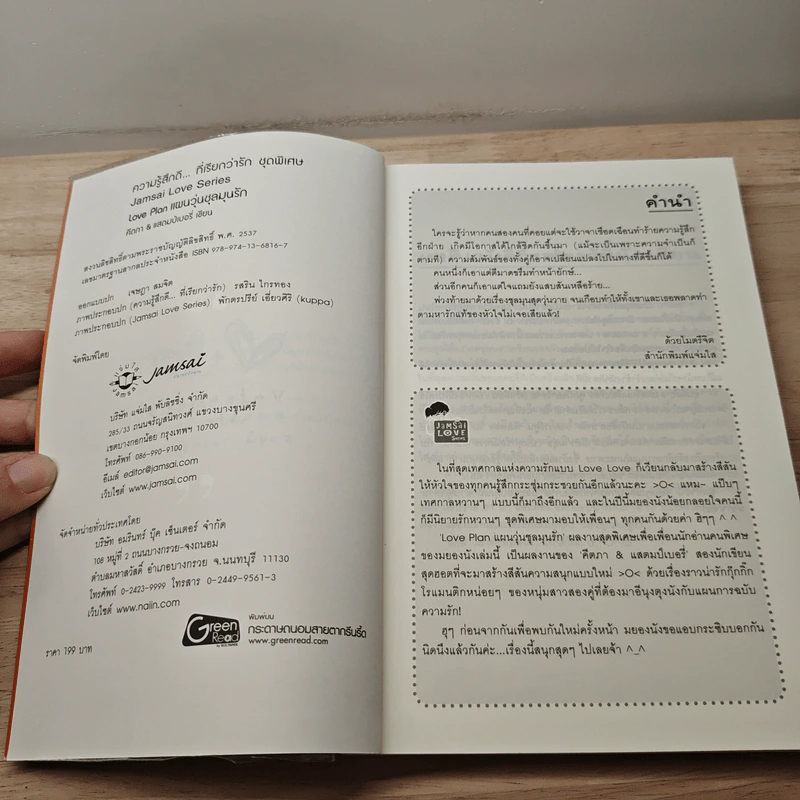 ความรู้สึกดี... ที่เรียกว่ารัก ชุดพิเศษ
Jamsai Love Series
Love Plan แผนวุ่นชุลมุนรัก
คีตภา & แสตมป์เบอรี่ เขียน
สงวนลิขสิทธิ์ตามพระราชบัญญัติลิขสิทธิ์ พ.ศ. 2537
เลขมาตรฐานสากลประจำหนังสือ ISBN 978-974-13-6816-7
ออกแบบปก เจษฎา สมจิต
ภาพประกอบปก (ความรู้สึกดี... ที่เรียกว่ารัก) รสริน ไกรทอง
ภาพประกอบปก (Jamsai Love Series) พักตรปรีย์ เอี่ยวศิริ (kuppa)
จัดพิมพ์โดย
jamsai
บริษัท แจ่มใส พับลิชชิ่ง จำกัด
285/33 ถนนจรัญสนิทวงศ์ แขวงบางขุนศรี
เขตบางกอกน้อย กรุงเทพฯ 10700
โทรศัพท์ 086-990-9100
อีเมล์ editor@jamsai.com
เว็บไซต์ www.jamsai.com
จัดจำหน่ายทั่วประเทศโดย
บริษัท อมรินทร์ บุ๊ค เซ็นเตอร์ จำกัด
108 หมู่ที่ 2 ถนนบางกรวย-จงถนอม
ตำบลมหาสวัสดิ์ อำเภอบางกรวย จ.นนทบุรี 11130
โทรศัพท์ 0-2423-9999 โทรสาร 0-2449-9561-3
เว็บไซต์ www.naiin.com
Green Read
พิมพ์บน
กระดาษถนอมสายตากรีนรี้ด
www.greenread.com
ราคา 199 บาท
คำนำ
ใครจะรู้ว่าหากคนสองคนที่คอยแต่จะใช้วาจาเชือดเฉือนทำร้ายความรู้สึก
อีกฝ่าย เกิดมีโอกาสได้ใกล้ชิดกันขึ้นมา (แม้จะเป็นเพราะความจำเป็นก็
ตามที) ความสัมพันธ์ของทั้งคู่ก็อาจเปลี่ยนแปลงไปในทางที่ดีขึ้นก็ได้
คนหนึ่งก็เอาแต่ตีมาดขรึมทำหน้ายักษ์...
ส่วนอีกคนก็เอาแต่ใจแถมยังแสบสันเหลือร้าย...
พ่วงท้ายมาด้วยเรื่องชุลมุนสุดวุ่นวาย จนเกือบทำให้ทั้งเขาและเธอพลาดท่า
ตามหารักแท้ของหัวใจไม่เจอเสียแล้ว!
ด้วยไมตรีจิต
สำนักพิมพ์แจ่มใส
JAMSAI
LOVE
SERIES
ในที่สุดเทศกาลแห่งความรักแบบ Love Love ก็เวียนกลับมาสร้างสีสัน
ให้หัวใจของทุกคนรู้สึกกระชุ่มกระชวยกันอีกแล้วนะคะ >O< แหม~ แป๊บๆ
เทศกาลหวานๆ แบบนี้ก็มาถึงอีกแล้ว และในปีนี้มยองนังน้อยกลอยใจคนนี้
ก็มีนิยายรักหวานๆ ชุดพิเศษมามอบให้เพื่อนๆ ทุกคนกันด้วยค่า ฮิๆๆ ^ ^
'Love Plan แผนวุ่นชุลมุนรัก' ผลงานสุดพิเศษเพื่อเพื่อนนักอ่านคนพิเศษ
ของมยองนังเล่มนี้ เป็นผลงานของ 'คีตภา & แสตมป์เบอรี่' สองนักเขียน
สุดฮอตที่จะมาสร้างสีสันความสนุกแบบใหม่ >O< ด้วยเรื่องราวน่ารักกุ๊กกิ๊ก
โรแมนติกหน่อยๆ ของหนุ่มสาวสองคู่ที่ต้องมาอีนุงตุงนังกับแผนการฉบับ
ความรัก!
ฮุๆ ก่อนจากกันเพื่อพบกันใหม่ครั้งหน้า มยองนังขอแอบกระซิบบอกกัน
นิดนึงแล้วกันค่ะ...เรื่องนี้สนุกสุดๆ ไปเลยจ้า ^_^